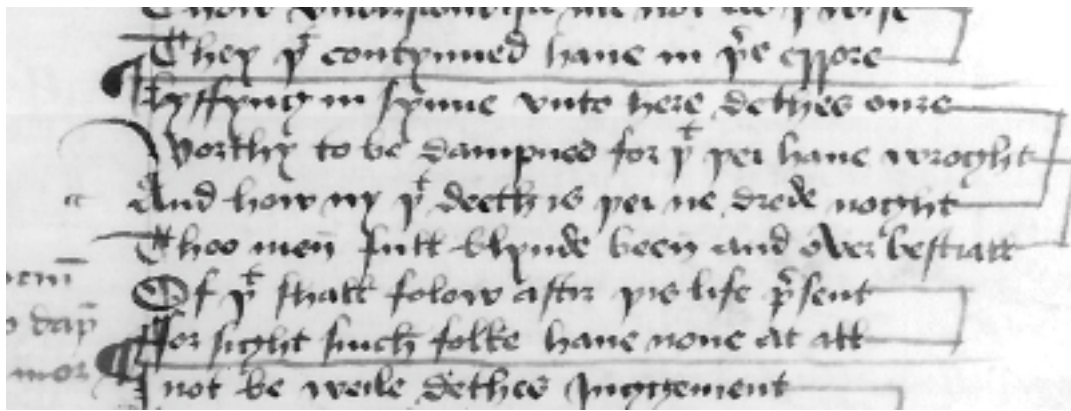 They þᵗ contynued haue in errore
lyffyng in synne vnto here dethes oure
Worthy to be dampned for þᵗ þei haue wroght
And how ny þᵗ deeth is þei ne drede noght
Thoo men full blynde been and over bestiall
Of þᵗ shall folow aftir þis life p̄sent
ffor sight such folke haue none at all
I not be weile dethes Juggement